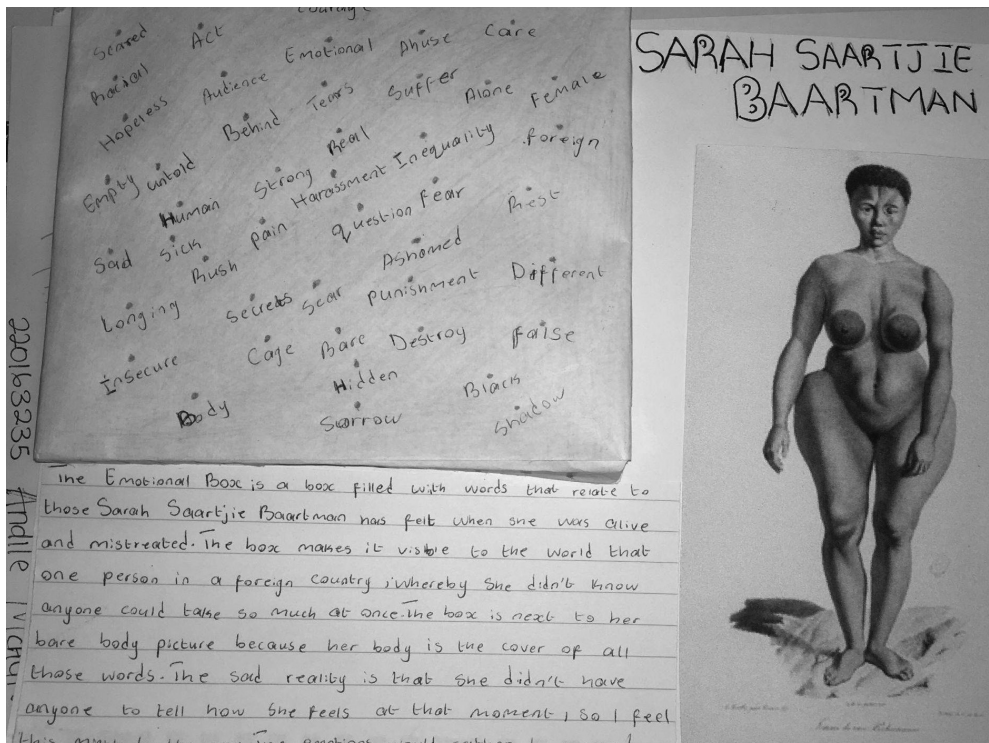 courage
Scared Act Emotional Abuse Care
Racial Audience Tears Suffer Alone Female
Hopeless Behind Real Inequality foreign
Empty untold Strong Harassment
Human question Fear Rest
Sad sick pain Ashamed
Rush
Longing secrets scar punishment Different
Insecure Cage Bare Destroy false
Hidden Black
Body Sorrow Shadow
SARAH SAARTJIE
BAARTMAN
220163235 Andile
The Emotional Box is a box filled with words that relate to
those Sarah Saartjie Baartman has felt when she was alive
and mistreated. The box makes it visible to the world that
one person in a foreign country, whereby she didn't know
anyone could take so much at once. The box is next to her
bare body picture because her body is the cover of all
those words. The sad reality is that she didn't have
anyone to tell how she feels at that moment, so I feel